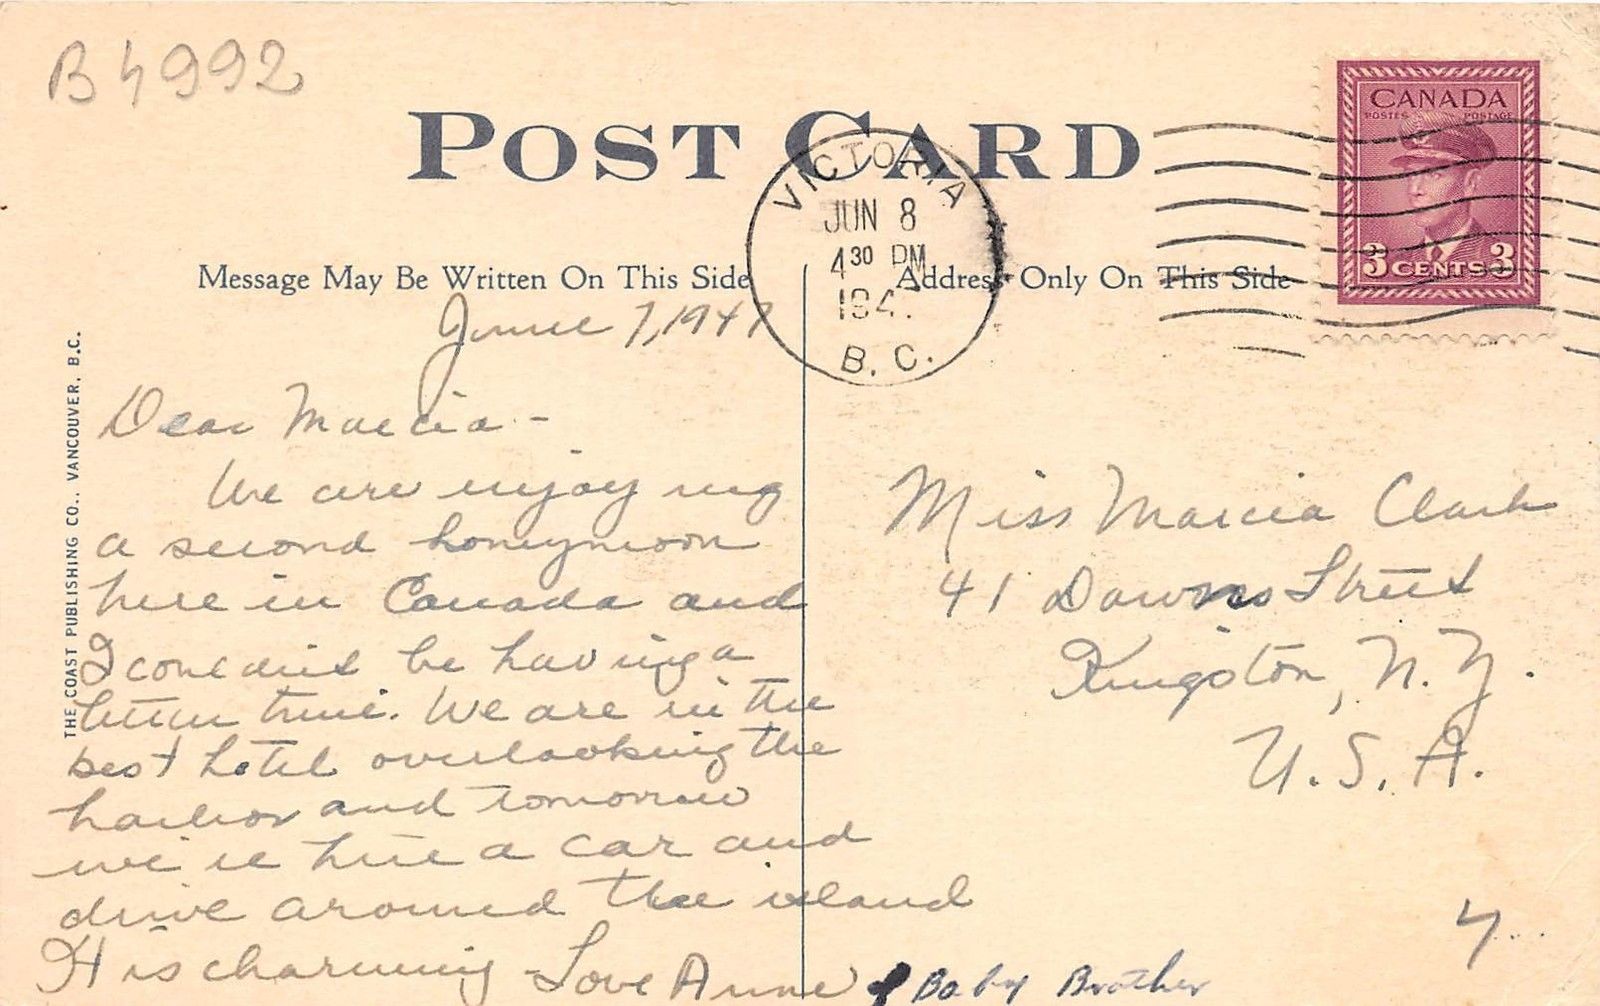 B4992
POST CARD
CANADA
POSTES POSTAGE
3 CENTS 3
VICTORIA
JUN 8
4 30 PM
194
B.C.
Message May Be Written On This Side
Address Only On This Side
THE COAST PUBLISHING CO., VANCOUVER, B.C.
June 7, 1947
Dear Marcia -
We are enjoying
a second honeymoon
here in Canada and
I couldn't be having a
better time. We are in the
best hotel overlooking the
harbor and tomorrow
we'll hire a car and
drive around the island
It is charming - Love Anne & Baby Brother
Miss Marcia Clark
41 Downs Street
Kingston, N.Y.
U.S.A.